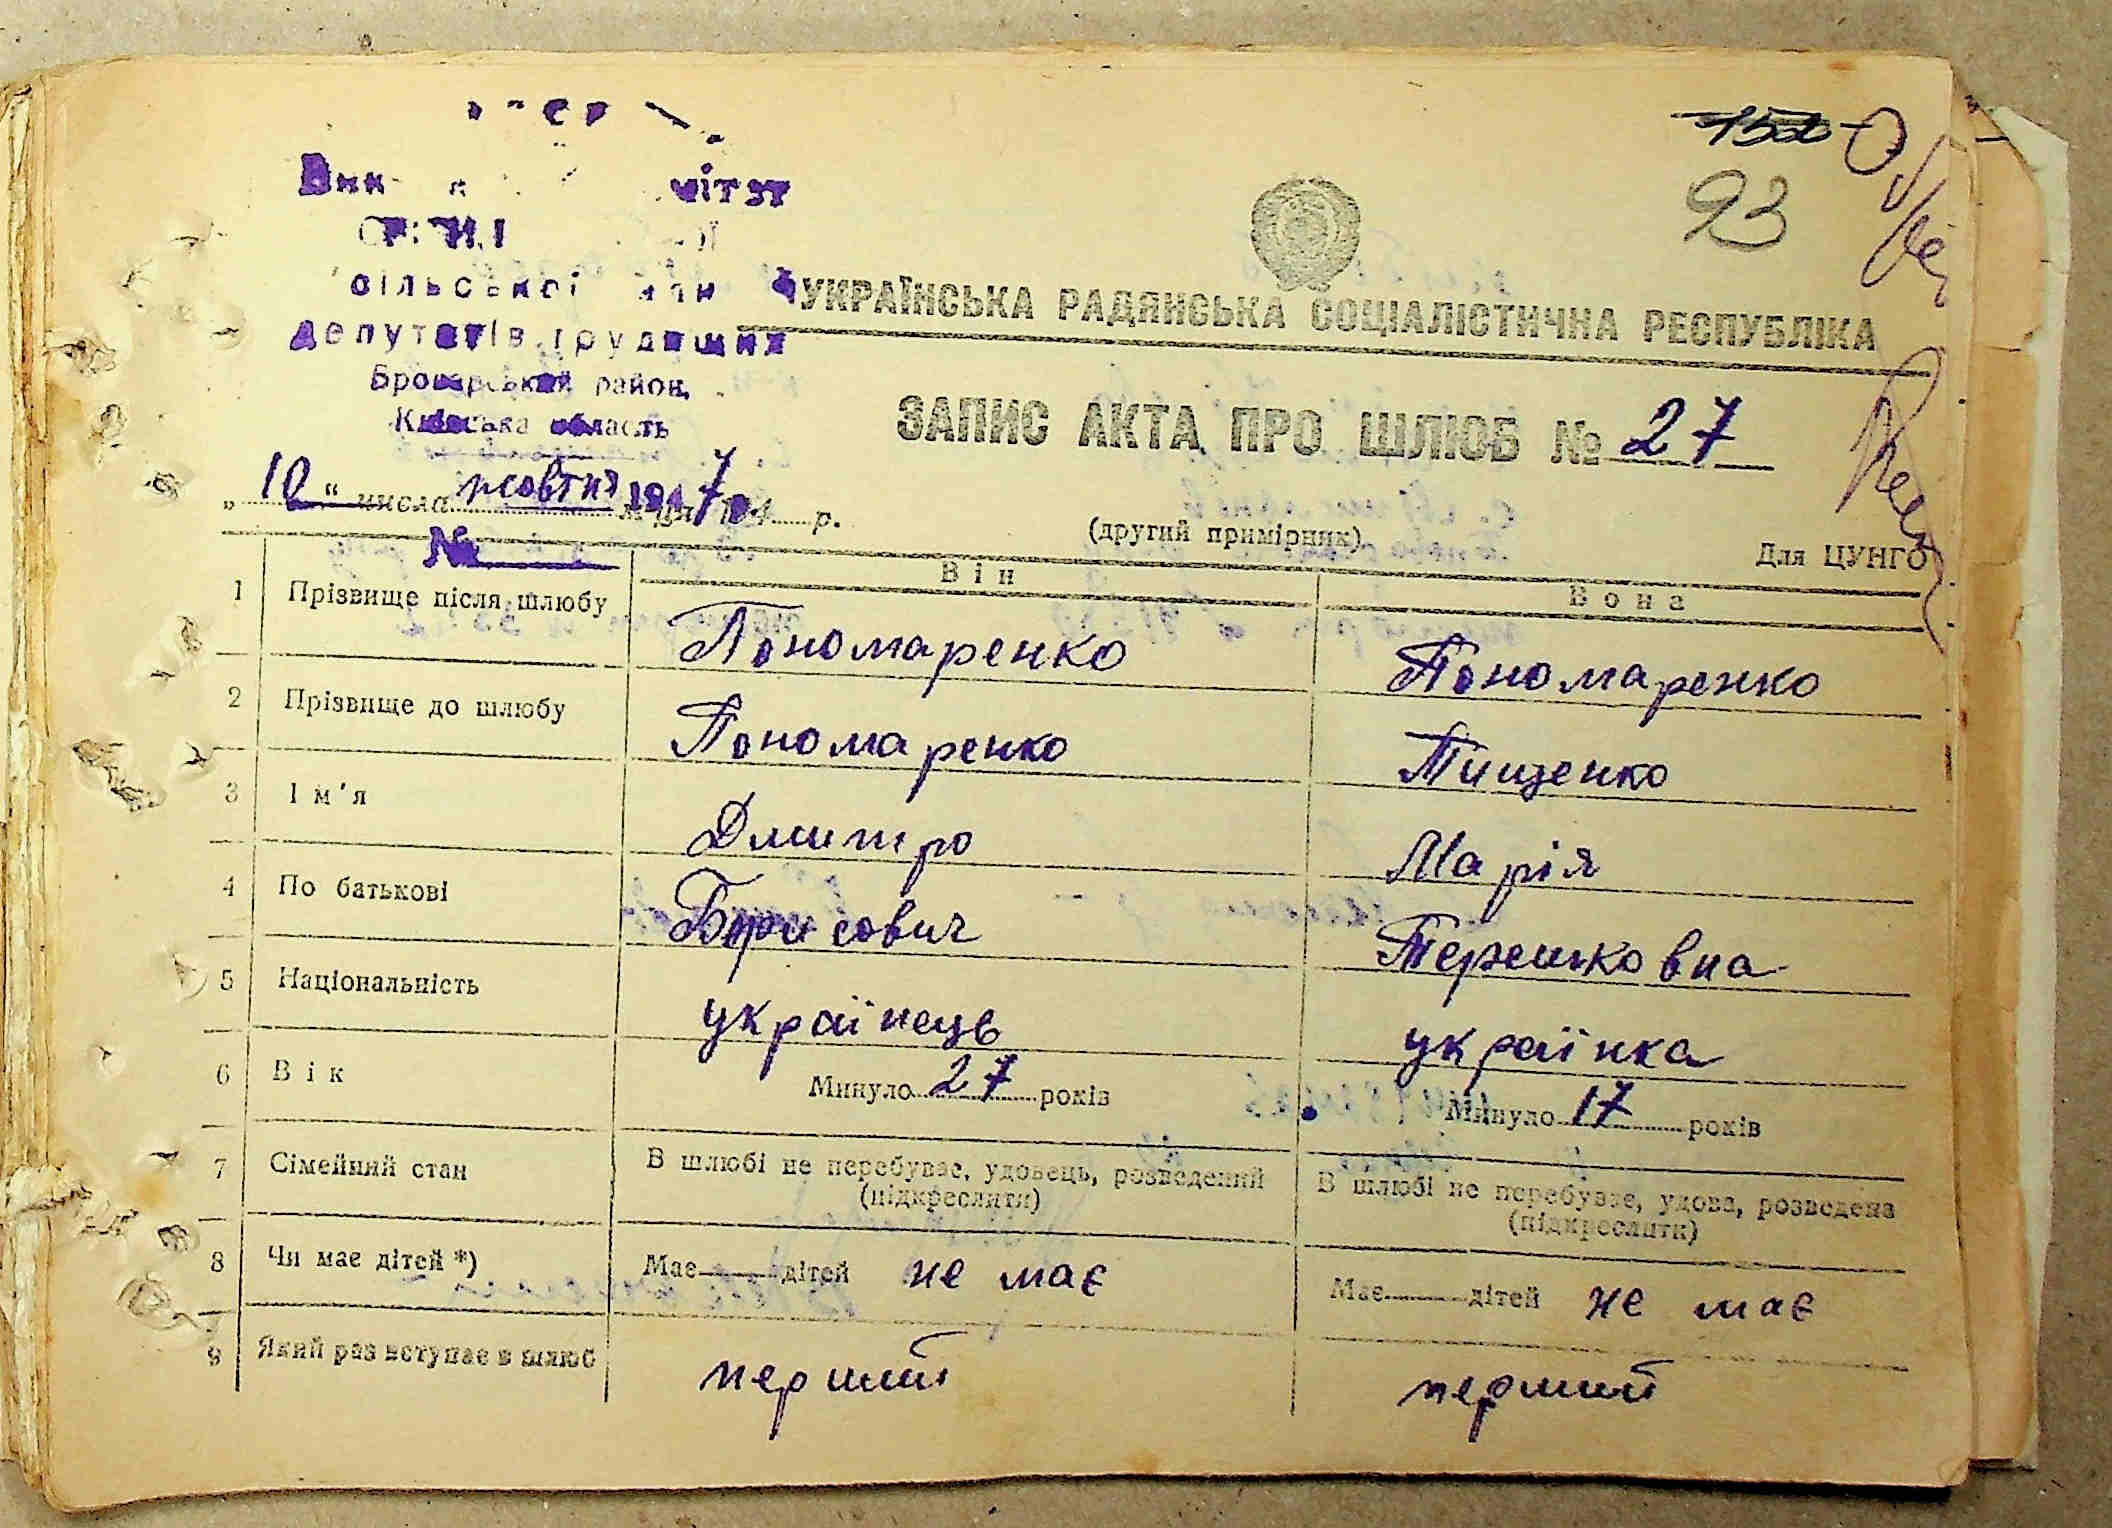 93
сільської
депутатів трудящих
Броварський район,
Київська область
УКРАЇНСЬКА РАДЯНСЬКА СОЦІАЛІСТИЧНА РЕСПУБЛІКА
ЗАПИС АКТА ПРО ШЛЮБ № 27
„ 10 “ числа жовтня 1947 р.
№
(другий примірник)
Для ЦУНГО
Він Вона
1 Прізвище після шлюбу Пономаренко Пономаренко
2 Прізвище до шлюбу Пономаренко Тищенко
3 Ім'я Дмитро Марія
4 По батькові Борисович Терешковна
5 Національність українець українка
6 Вік Минуло 27 років Минуло 17 років
7 Сімейний стан В шлюбі не перебуває, удовець, розведений В шлюбі не перебуває, удова, розведена
(підкреслити) (підкреслити)
8 Чи має дітей *) Має дітей не має Має дітей не має
9 Який раз вступає в шлюб перший перший